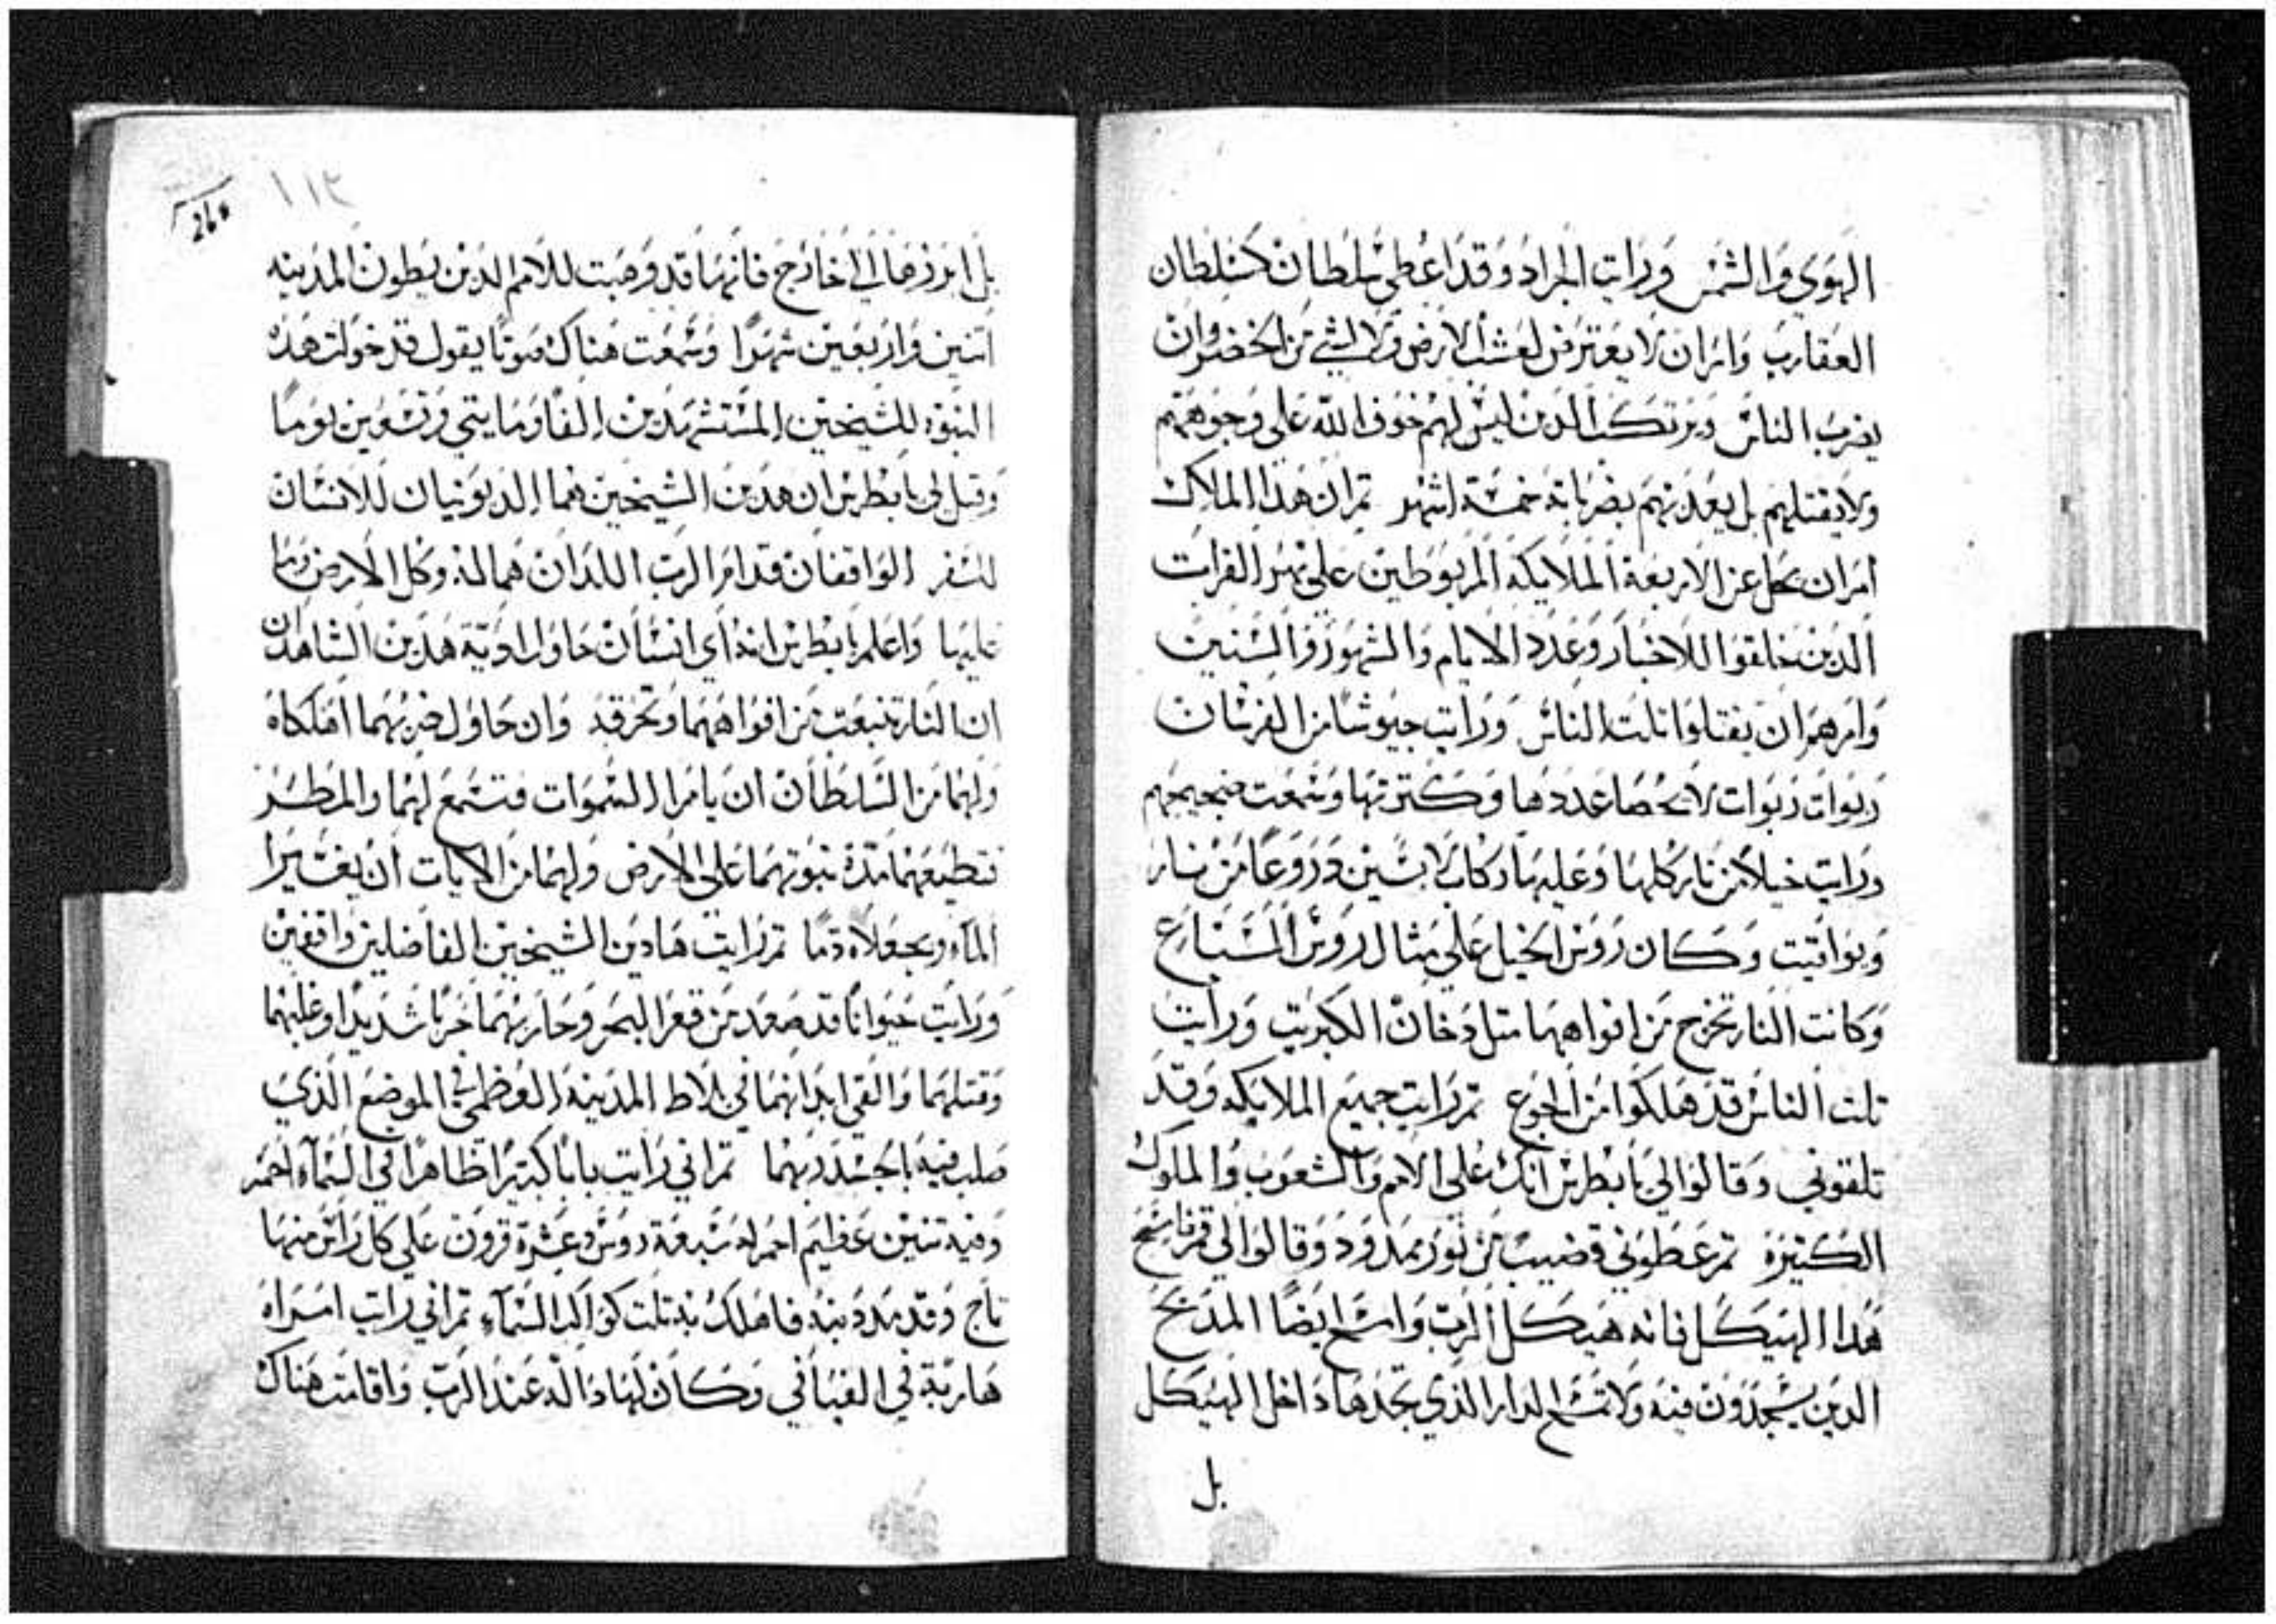 الهوي والشمس ورايت الجراد وقد اعطي سلطان كسلطان
العقارب وامر ان لا يعترض لعشب الارض ولا لشي من الخضر وان
يضرب الناس ويرتكب الدين ليس لهم خوف الله علي وجوههم
ولا يقتلهم بل يعدبهم بضرباته خمسة اشهر تم ان هدا الملاك
امر ان يحل عن الاربعة الملايكه المربوطين علي نهر الفرات
الدين خلقوا للاخبار وعدد الايام والشهور والسنين
وامرهم ان يقتلوا تلت الناس ورايت جيوشا من الفرسان
ربوات ربوات لا يحصا عددها وكترتها وسمعت ضجيجهم
ورايت خيلا من نار كلها وعليها ركاب لابسين دروعا من نار
ويواقيت وكان روس الخيل علي متال روس السباع
وكانت النار تخرج من افواهها متل دخان الكبريت ورايت
تلت الناس قد هلكوا من الجوع تم رايت جميع الملايكه وقد
تلقوني وقالوا لي يا بطرس انك علي الامم والشعوب والملوك
الكتيرة تم عطوني قضيب من نور ممدود وقالوا لي قم فامسح
هدا الهيكل فانه هيكل الرب وامسح ايضا المدبح
الدين يسجدون فيه ولا تمسح الدار الذي تجدها داخل الهيكل
بل
١١٣
260
بل ابرزها الي خارج فانها قد وهبت للامم الدين يطون المدينه
اتنين واربعين شهرا وسمعت هناك صوتا يقول قد خولت هده
النبوه للشيخين المستشهدين الفا ومايتي وتسعين يوما
وقيل لي يا بطرس ان هدين الشيخين هما الديونيان للانسان
للسفر الواقفان قدام الرب اللدان هما له وكل الارض وما
عليها واعلم يا بطرس انه اي انسان حاول اديّة هدين الشاهدان
ان النار تنبعت من افواههما وتحرقه وان حاول ضربهما اهلكاه
ولهما من السلطان ان يامرا السموات فتسمع لهما والمطر
فتطيعهما مدة نبوتهما علي الارض ولهما من الايات ان يغيرا
الماء ويجعلاه دما تم رايت هادين الشيخين الفاضلين واقفين
ورايت حيوانا قد صعد من قعر البحر وحاربهما حربا شديدا وغلبهما
وقتلهما والقي ابدانهما في بلاط المدينة العظمي في الموضع الذي
صلب فيه بالجسد ربهما تم اني رايت بابا كبيرا ظاهرا في السماء احمر
وفيه تنين عظيم احمر له سبعة روس وعشرة قرون علي كل راس منها
تاج وقد مد دنبه فاهلك به تلت كواكب السماء تم اني رايت امراه
هاربة في الفيافي وكان لها دالّه عند الرب واقامت هناك